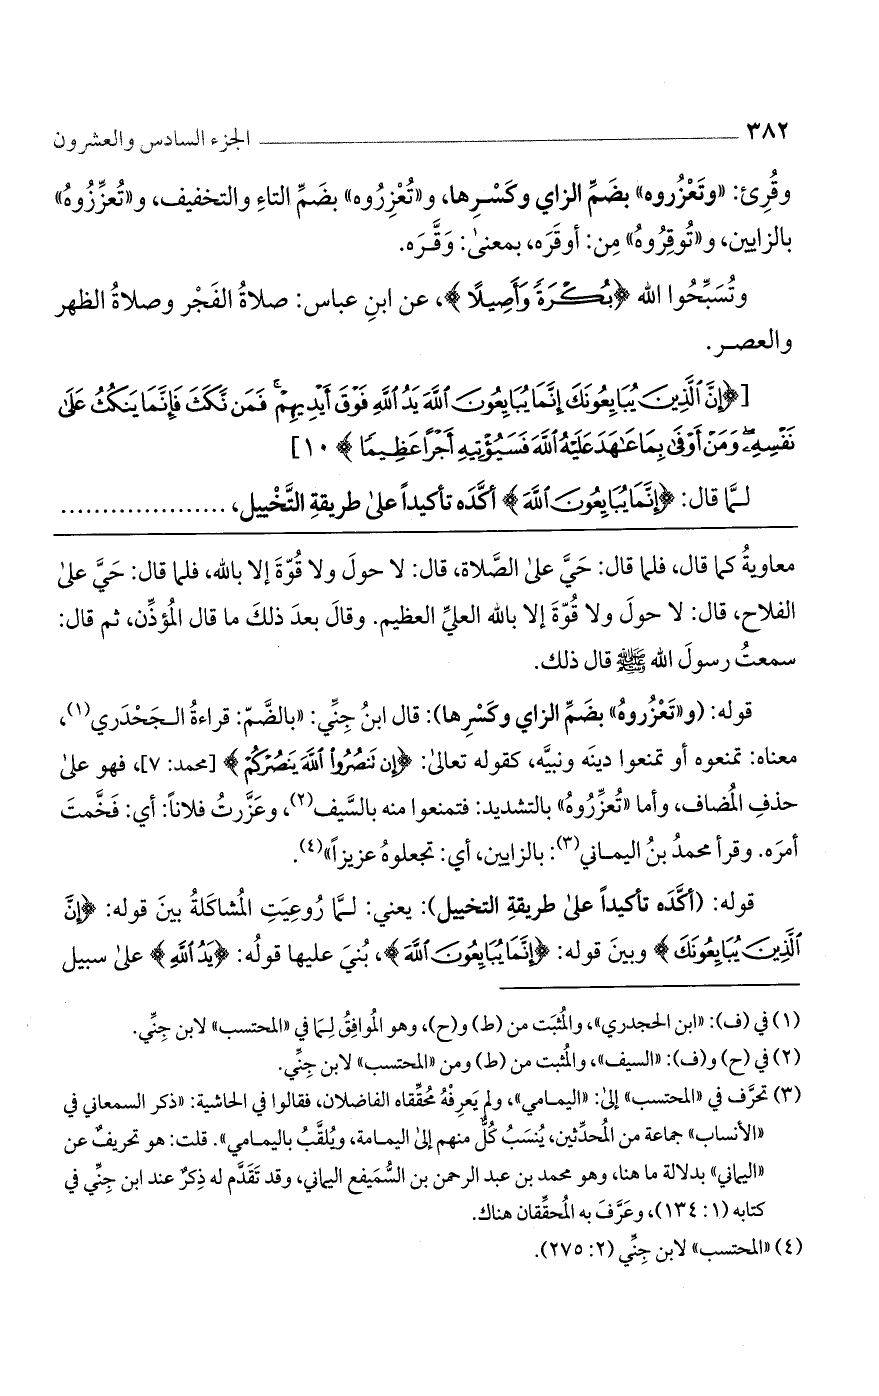 ٣٨٢ الجزء السادس والعشرون
وقُرِئ: «وتَعْزُروه» بضَمِّ الزاي وكَسْرِها، و«تُعْزِرُوه» بضَمِّ التاءِ والتخفيف، و«تُعزِّزُوهُ»
بالزايين، و«تُوقِرُوهُ» مِن: أوقَرَه، بمعنىٰ: وَقَّرَه.
وتُسَبِّحُوا الله ﴿بُكْرَةً وَأَصِيلًا﴾، عن ابنِ عباس: صلاةُ الفَجْر وصلاةُ الظهر
والعصر.
[﴿إِنَّ ٱلَّذِينَ يُبَايِعُونَكَ إِنَّمَا يُبَايِعُونَ ٱللَّهَ يَدُ ٱللَّهِ فَوْقَ أَيْدِيهِمْ ۚ فَمَن نَّكَثَ فَإِنَّمَا يَنكُثُ عَلَىٰ
نَفْسِهِۦ ۖ وَمَنْ أَوْفَىٰ بِمَا عَٰهَدَ عَلَيْهُ ٱللَّهَ فَسَيُؤْتِيهِ أَجْرًا عَظِيمًا﴾ ١٠]
لـمَّا قال: ﴿إِنَّمَا يُبَايِعُونَ ٱللَّهَ﴾ أكَّدَه تأكيداً علىٰ طريقةِ التَّخْييل، ...................
معاويةُ كما قال، فلما قال: حَيَّ علىٰ الصَّلاة، قال: لا حولَ ولا قُوّةَ إلا بالله، فلما قال: حَيَّ علىٰ
الفلاح، قال: لا حولَ ولا قُوّةَ إلا بالله العليِّ العظيم. وقالَ بعدَ ذلكَ ما قال المُؤذِّن، ثم قال:
سمعتُ رسولَ الله ﷺ قال ذلك.
قوله: (و«تَعْزُروهُ» بضَمِّ الزاي وكَسْرِها): قال ابنُ جِنِّي: «بالضَّمّ: قراءةُ الـجَحْدَري(١)،
معناه: تمنعوه أو تمنعوا دينَه ونبيَّه، كقوله تعالىٰ: ﴿إِن تَنصُرُوا۟ ٱللَّهَ يَنصُرْكُمْ﴾ [محمد: ٧]، فهو علىٰ
حذفِ المُضاف، وأما «تُعزِّرُوهُ» بالتشديد: فتمنعوا منه بالسَّيف(٢)، وعَزَّرتُ فلاناً: أي: فَخَّمتَ
أمرَه. وقرأ محمدُ بنُ اليماني(٣): بالزايين، أي: تجعلوهُ عزيزاً»(٤).
قوله: (أكَّدَه تأكيداً علىٰ طريقةِ التخييل): يعني: لـمَّا رُوعِيَتِ المُشاكَلةُ بينَ قوله: ﴿إِنَّ
ٱلَّذِينَ يُبَايِعُونَكَ﴾ وبينَ قوله: ﴿إِنَّمَا يُبَايِعُونَ ٱللَّهَ﴾، بُنيَ عليها قولُه: ﴿يَدُ ٱللَّهِ﴾ علىٰ سبيل
(١) في (ف): «ابن الحجدري»، والمُثبَت من (ط) و(ح)، وهو المُوافِقُ لِـمَا في «المحتسب» لابن جِنِّي.
(٢) في (ح) و(ف): «السيف»، والمُثبت من (ط) ومن «المحتسب» لابن جِنِّي.
(٣) تحرَّف في «المحتسب» إلىٰ: «اليمامي»، ولم يَعرِفْهُ مُحقِّقاه الفاضلان، فقالوا في الحاشية: «ذكر السمعاني في
«الأنساب» جماعة من المُحدِّثين، يُنسَبُ كُلٌّ منهم إلىٰ اليمامة، ويُلقَّبُ باليمامي». قلت: هو تحريفٌ عن
«اليماني» بدلالة ما هنا، وهو محمد بن عبد الرحمن بن السُّمَيفع اليماني، وقد تَقَدَّم له ذِكرٌ عند ابن جِنِّي في
كتابه (١: ١٣٤)، وعَرَّفَ به المُحقِّقان هناك.
(٤) «المحتسب» لابن جِنِّي (٢: ٢٧٥).